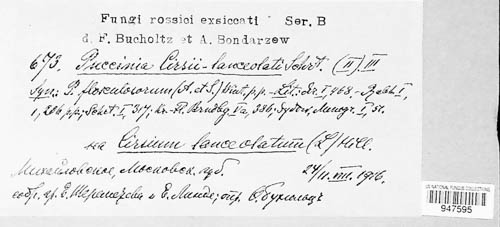 Fungi rossici exsiccati Ser. B
d. F. Bucholtz et A. Bondarzew
673. Puccinia Cirsii-lanceolati Schrt. (II) III
Syn: P. flosculosorum (A. et S.) Wint. p.p.
1, 206, p.p.; Schrt. I, 317; Kr.-Fl. Brndbg. Va, 386; Sydow, Monogr. I, 51.
на Cirsium lanceolatum (L) Hill.
Михайловское, Московск. губ. 24/II. VIII. 1916.
собр. гр. Е. Шереметева и Е. Минде; опр. Ѳ. Бухгольцъ
US NATIONAL FUNGUS COLLECTIONS
947595